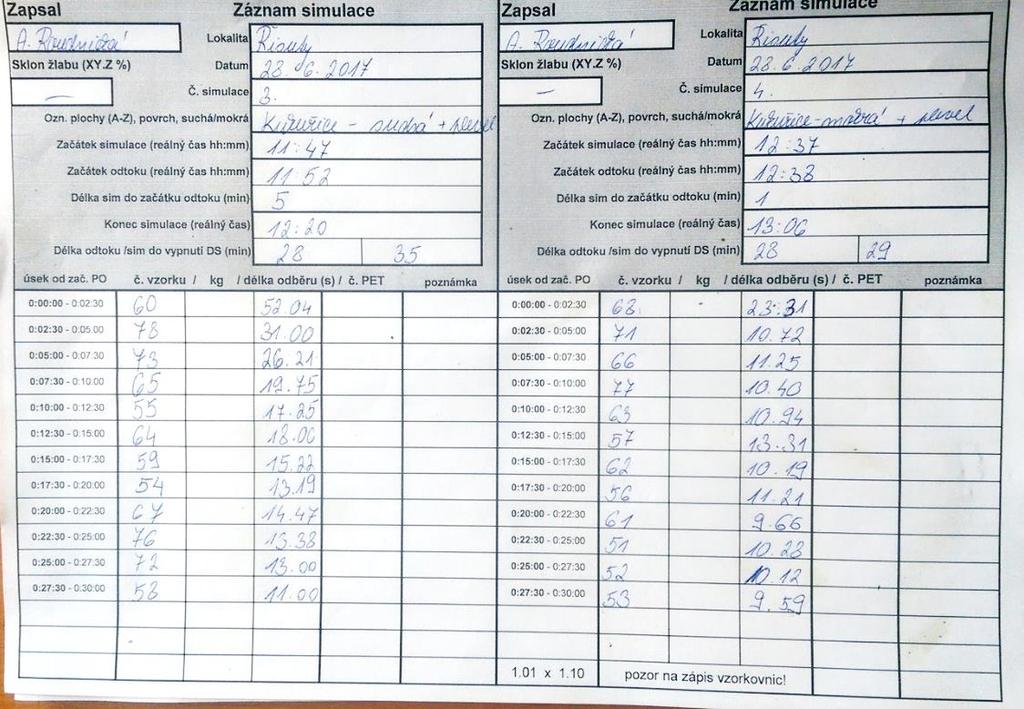 Zapsal
Záznam simulace
A. Roudnická
Lokalita Řisuty
Sklon žlabu (XY.Z %)
Datum 28. 6. 2017
—
Č. simulace 3.
Ozn. plochy (A-Z), povrch, suchá/mokrá Kukuřice - suchá + plevel
Začátek simulace (reálný čas hh:mm) 11:47
Začátek odtoku (reálný čas hh:mm) 11:52
Délka sim do začátku odtoku (min) 5
Konec simulace (reálný čas) 12:20
Délka odtoku /sim do vypnutí DS (min) 28 35
úsek od zač. PO č. vzorku / kg / délka odběru (s) / č. PET poznámka
0:00:00 - 0:02:30 60 52.04
0:02:30 - 0:05:00 78 31.00
0:05:00 - 0:07:30 73 26.21
0:07:30 - 0:10:00 65 19.75
0:10:00 - 0:12:30 55 17.25
0:12:30 - 0:15:00 64 18.00
0:15:00 - 0:17:30 59 15.22
0:17:30 - 0:20:00 54 13.19
0:20:00 - 0:22:30 67 14.47
0:22:30 - 0:25:00 76 13.38
0:25:00 - 0:27:30 72 13.00
0:27:30 - 0:30:00 58 11.00
Zapsal
Záznam simulace
A. Roudnická
Lokalita Řisuty
Sklon žlabu (XY.Z %)
Datum 28.6.2017
—
Č. simulace 4.
Ozn. plochy (A-Z), povrch, suchá/mokrá Kukuřice-mokrá + plevel
Začátek simulace (reálný čas hh:mm) 12:37
Začátek odtoku (reálný čas hh:mm) 12:38
Délka sim do začátku odtoku (min) 1
Konec simulace (reálný čas) 13:06
Délka odtoku /sim do vypnutí DS (min) 28 29
úsek od zač. PO č. vzorku / kg / délka odběru (s) / č. PET poznámka
0:00:00 - 0:02:30 68 23.31
0:02:30 - 0:05:00 71 10.72
0:05:00 - 0:07:30 66 11.25
0:07:30 - 0:10:00 77 10.40
0:10:00 - 0:12:30 63 10.94
0:12:30 - 0:15:00 57 13.31
0:15:00 - 0:17:30 62 10.19
0:17:30 - 0:20:00 56 11.21
0:20:00 - 0:22:30 61 9.66
0:22:30 - 0:25:00 51 10.28
0:25:00 - 0:27:30 52 10.12
0:27:30 - 0:30:00 53 9.59
1.01 x 1.10 pozor na zápis vzorkovnic!